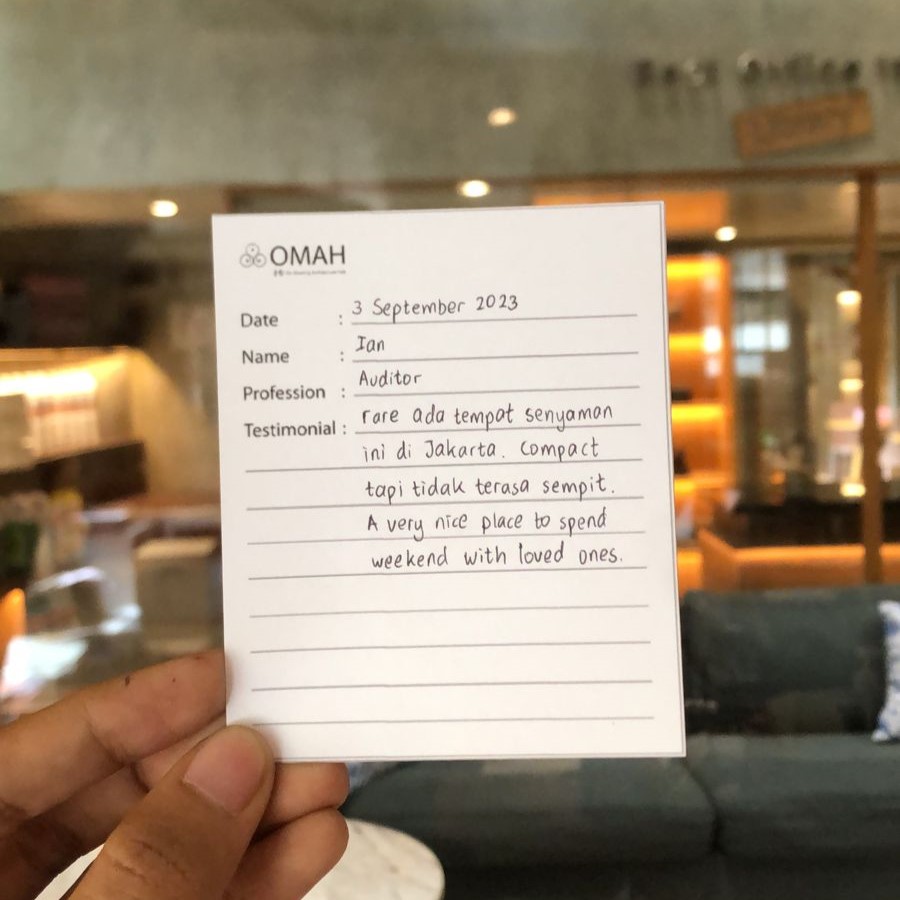 OMAH
Date : 3 September 2023
Name : Ian
Profession : Auditor
Testimonial : rare ada tempat senyaman
ini di Jakarta. Compact
tapi tidak terasa sempit.
A very nice place to spend
weekend with loved ones.